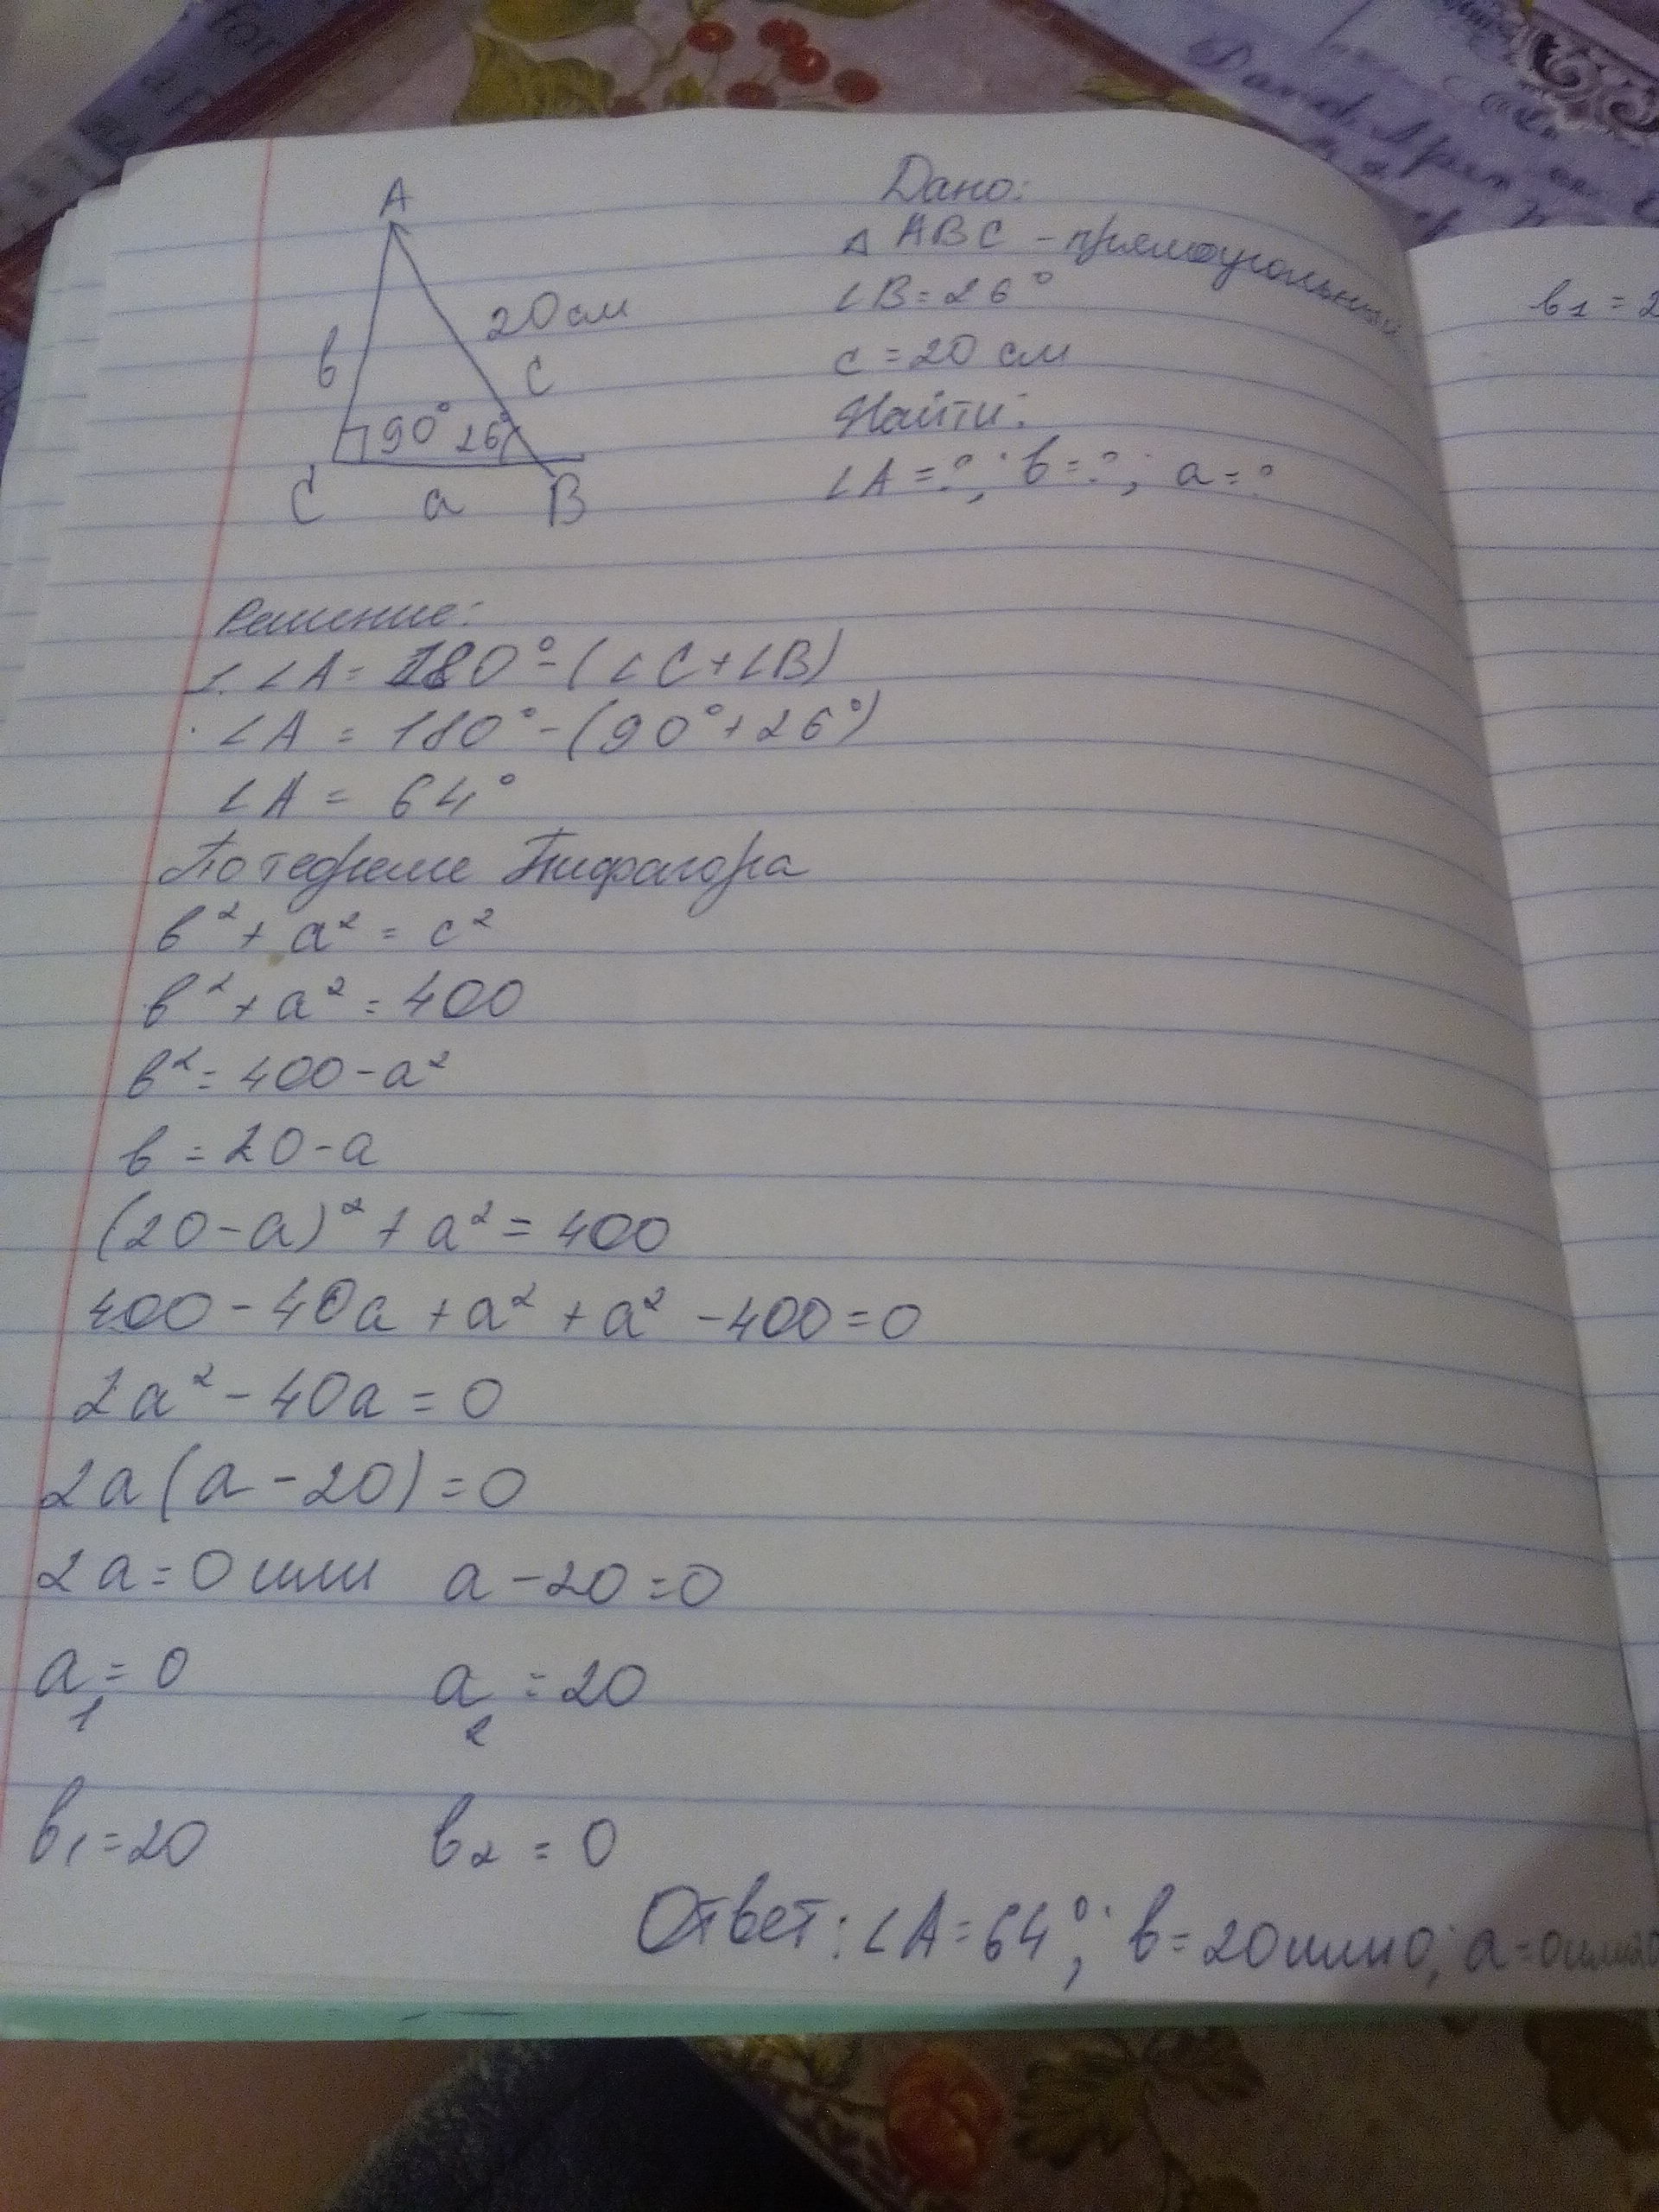 A
20 см
в
с
90° 26°
C
a
B
Дано:
△ ABC - прямоугольный
∠B = 26°
c = 20 см
Найти:
∠A = ?; в = ?; a = ?
в1 = 2
Решение:
1. ∠A = 180° - (∠C + ∠B)
∠A = 180° - (90° + 26°)
∠A = 64°
По теореме Пифагора
в² + a² = c²
в² + a² = 400
в² = 400 - a²
в = 20 - a
(20 - a)² + a² = 400
400 - 40a + a² + a² - 400 = 0
2a² - 40a = 0
2a(a - 20) = 0
2a = 0 или a - 20 = 0
a1 = 0 a2 = 20
в1 = 20 в2 = 0
Ответ: ∠A = 64°; в = 20 или 0; a = 0 или 20